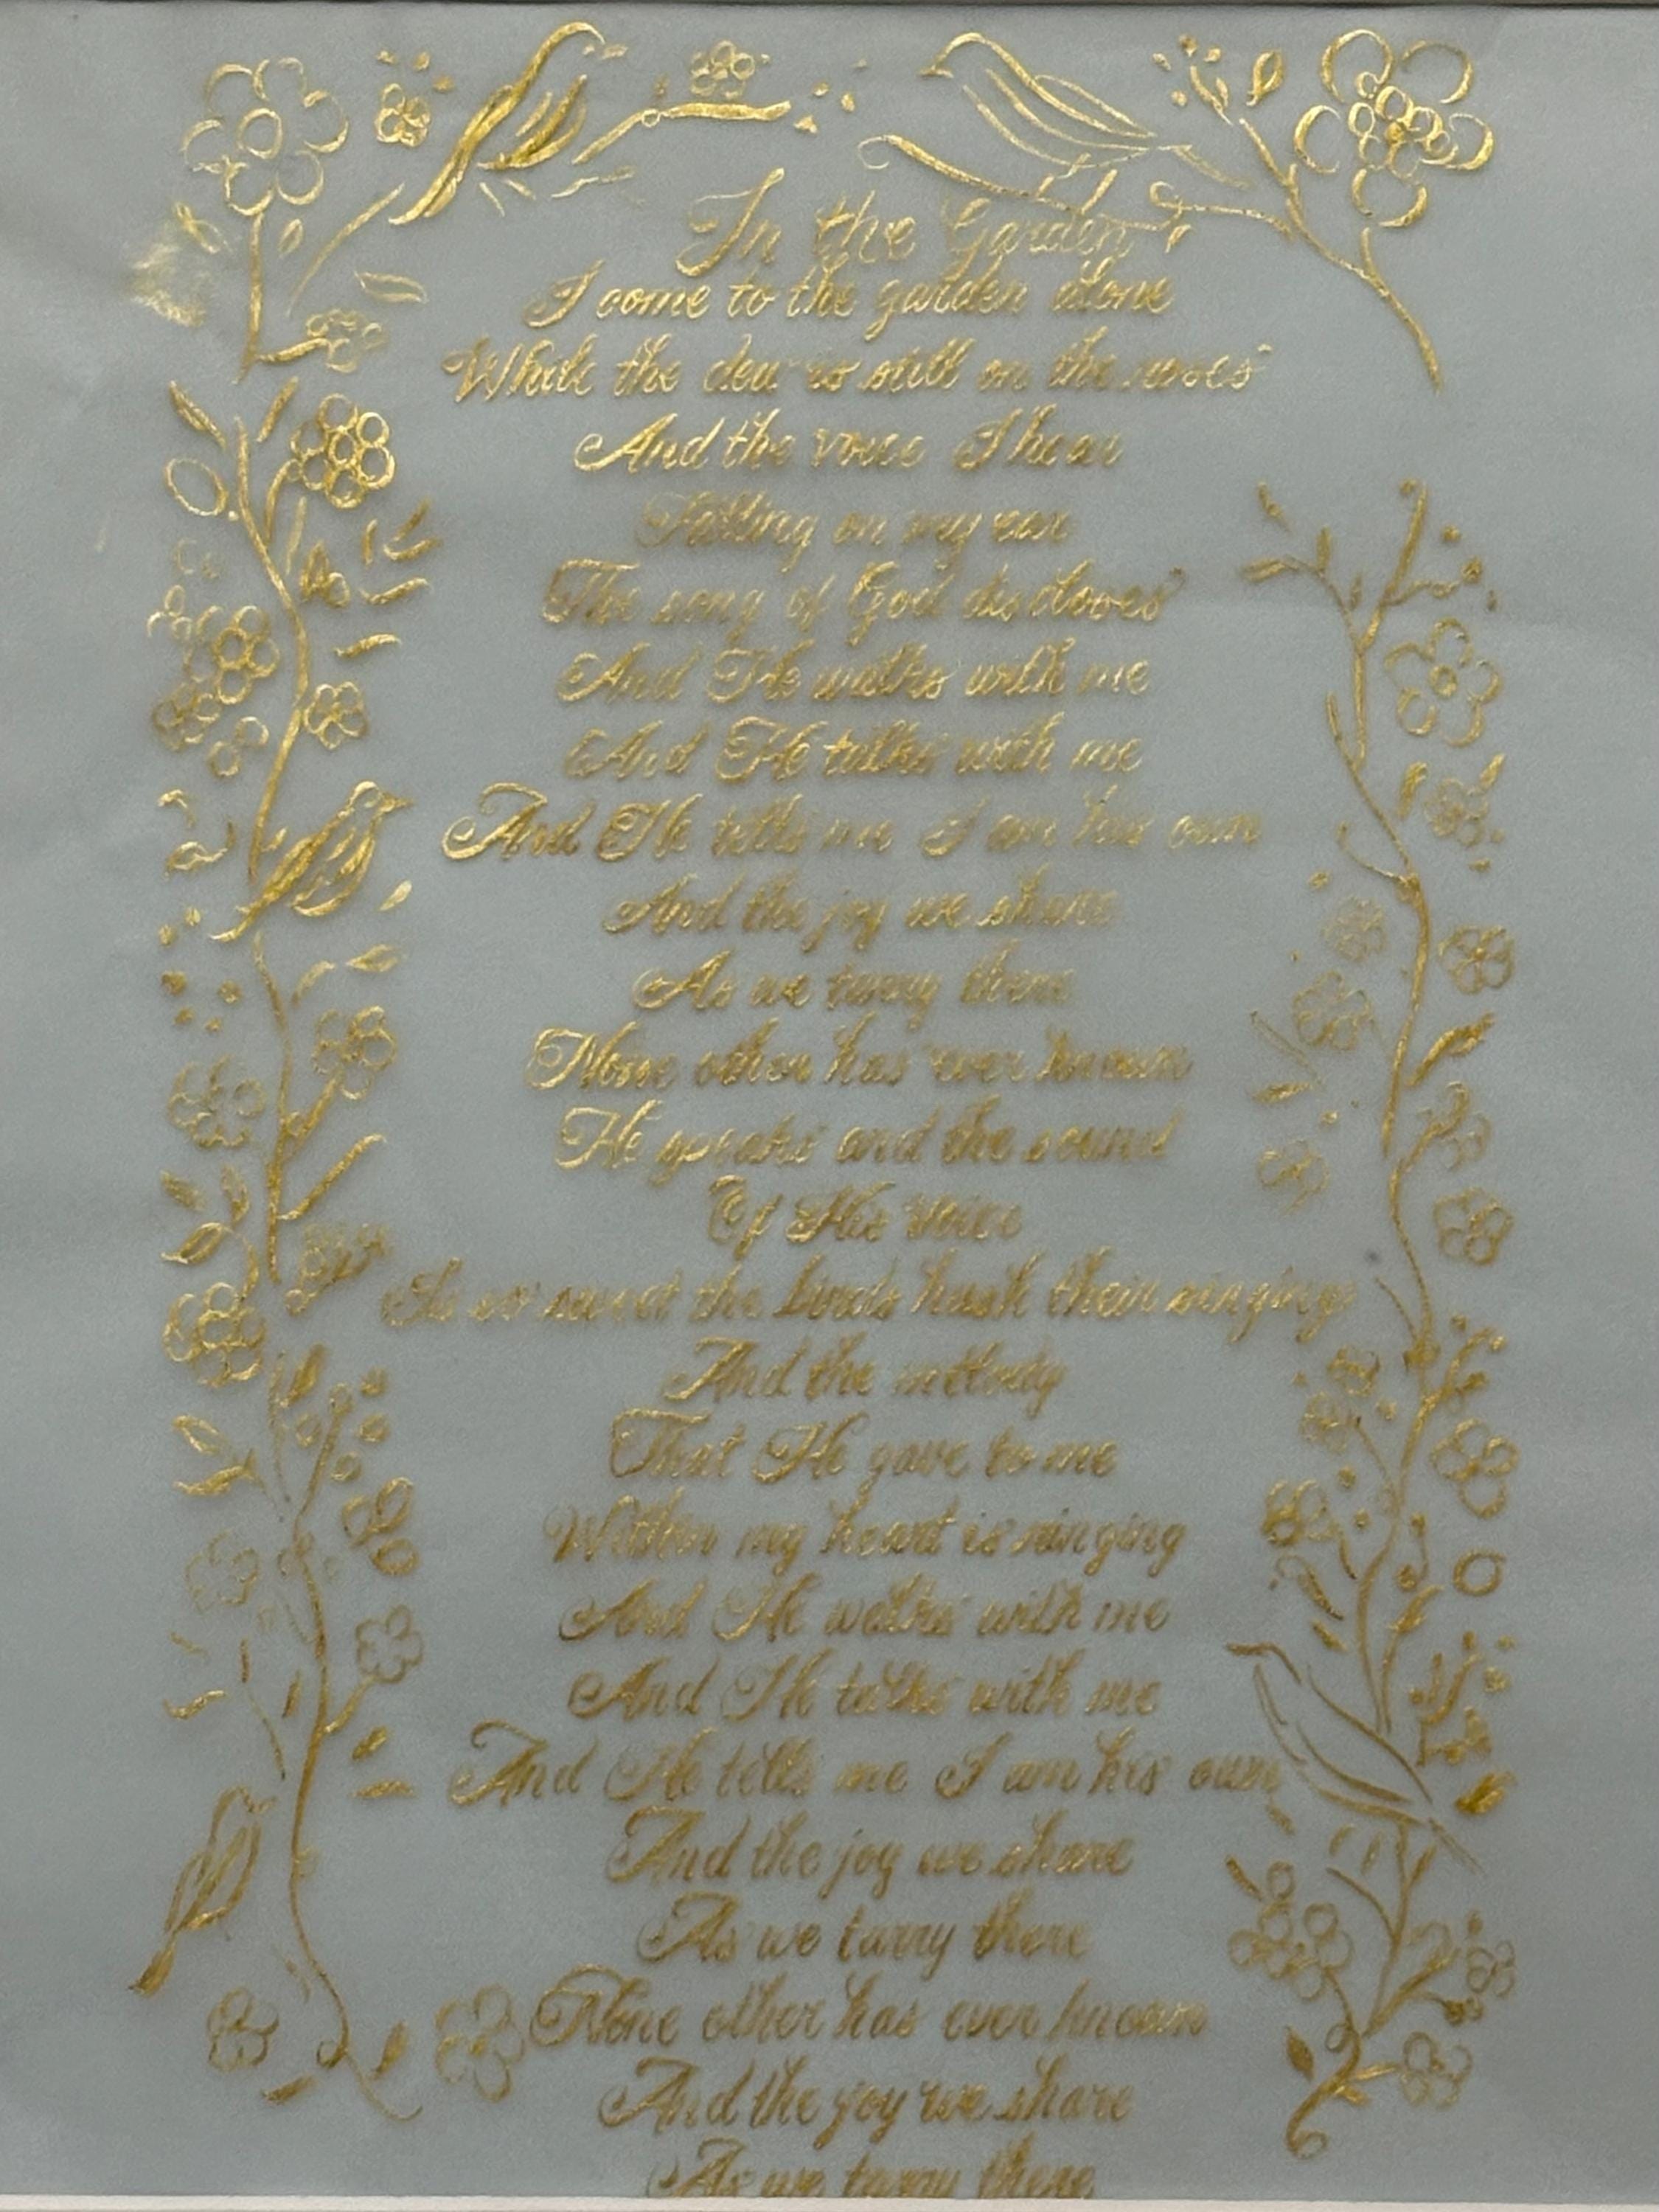 In the Garden
I come to the garden alone
While the dew is still on the roses
And the voice I hear
Falling on my ear
The song of God discloses
And He walks with me
And He talks with me
And He tells me I am his own
And the joy we share
As we tarry there
None other has ever known
He speaks and the sound
Of His voice
Is so sweet the birds hush their singing
And the melody
That He gave to me
Within my heart is ringing
And He walks with me
And He talks with me
And He tells me I am his own
And the joy we share
As we tarry there
None other has ever known
And the joy we share
As we tarry there